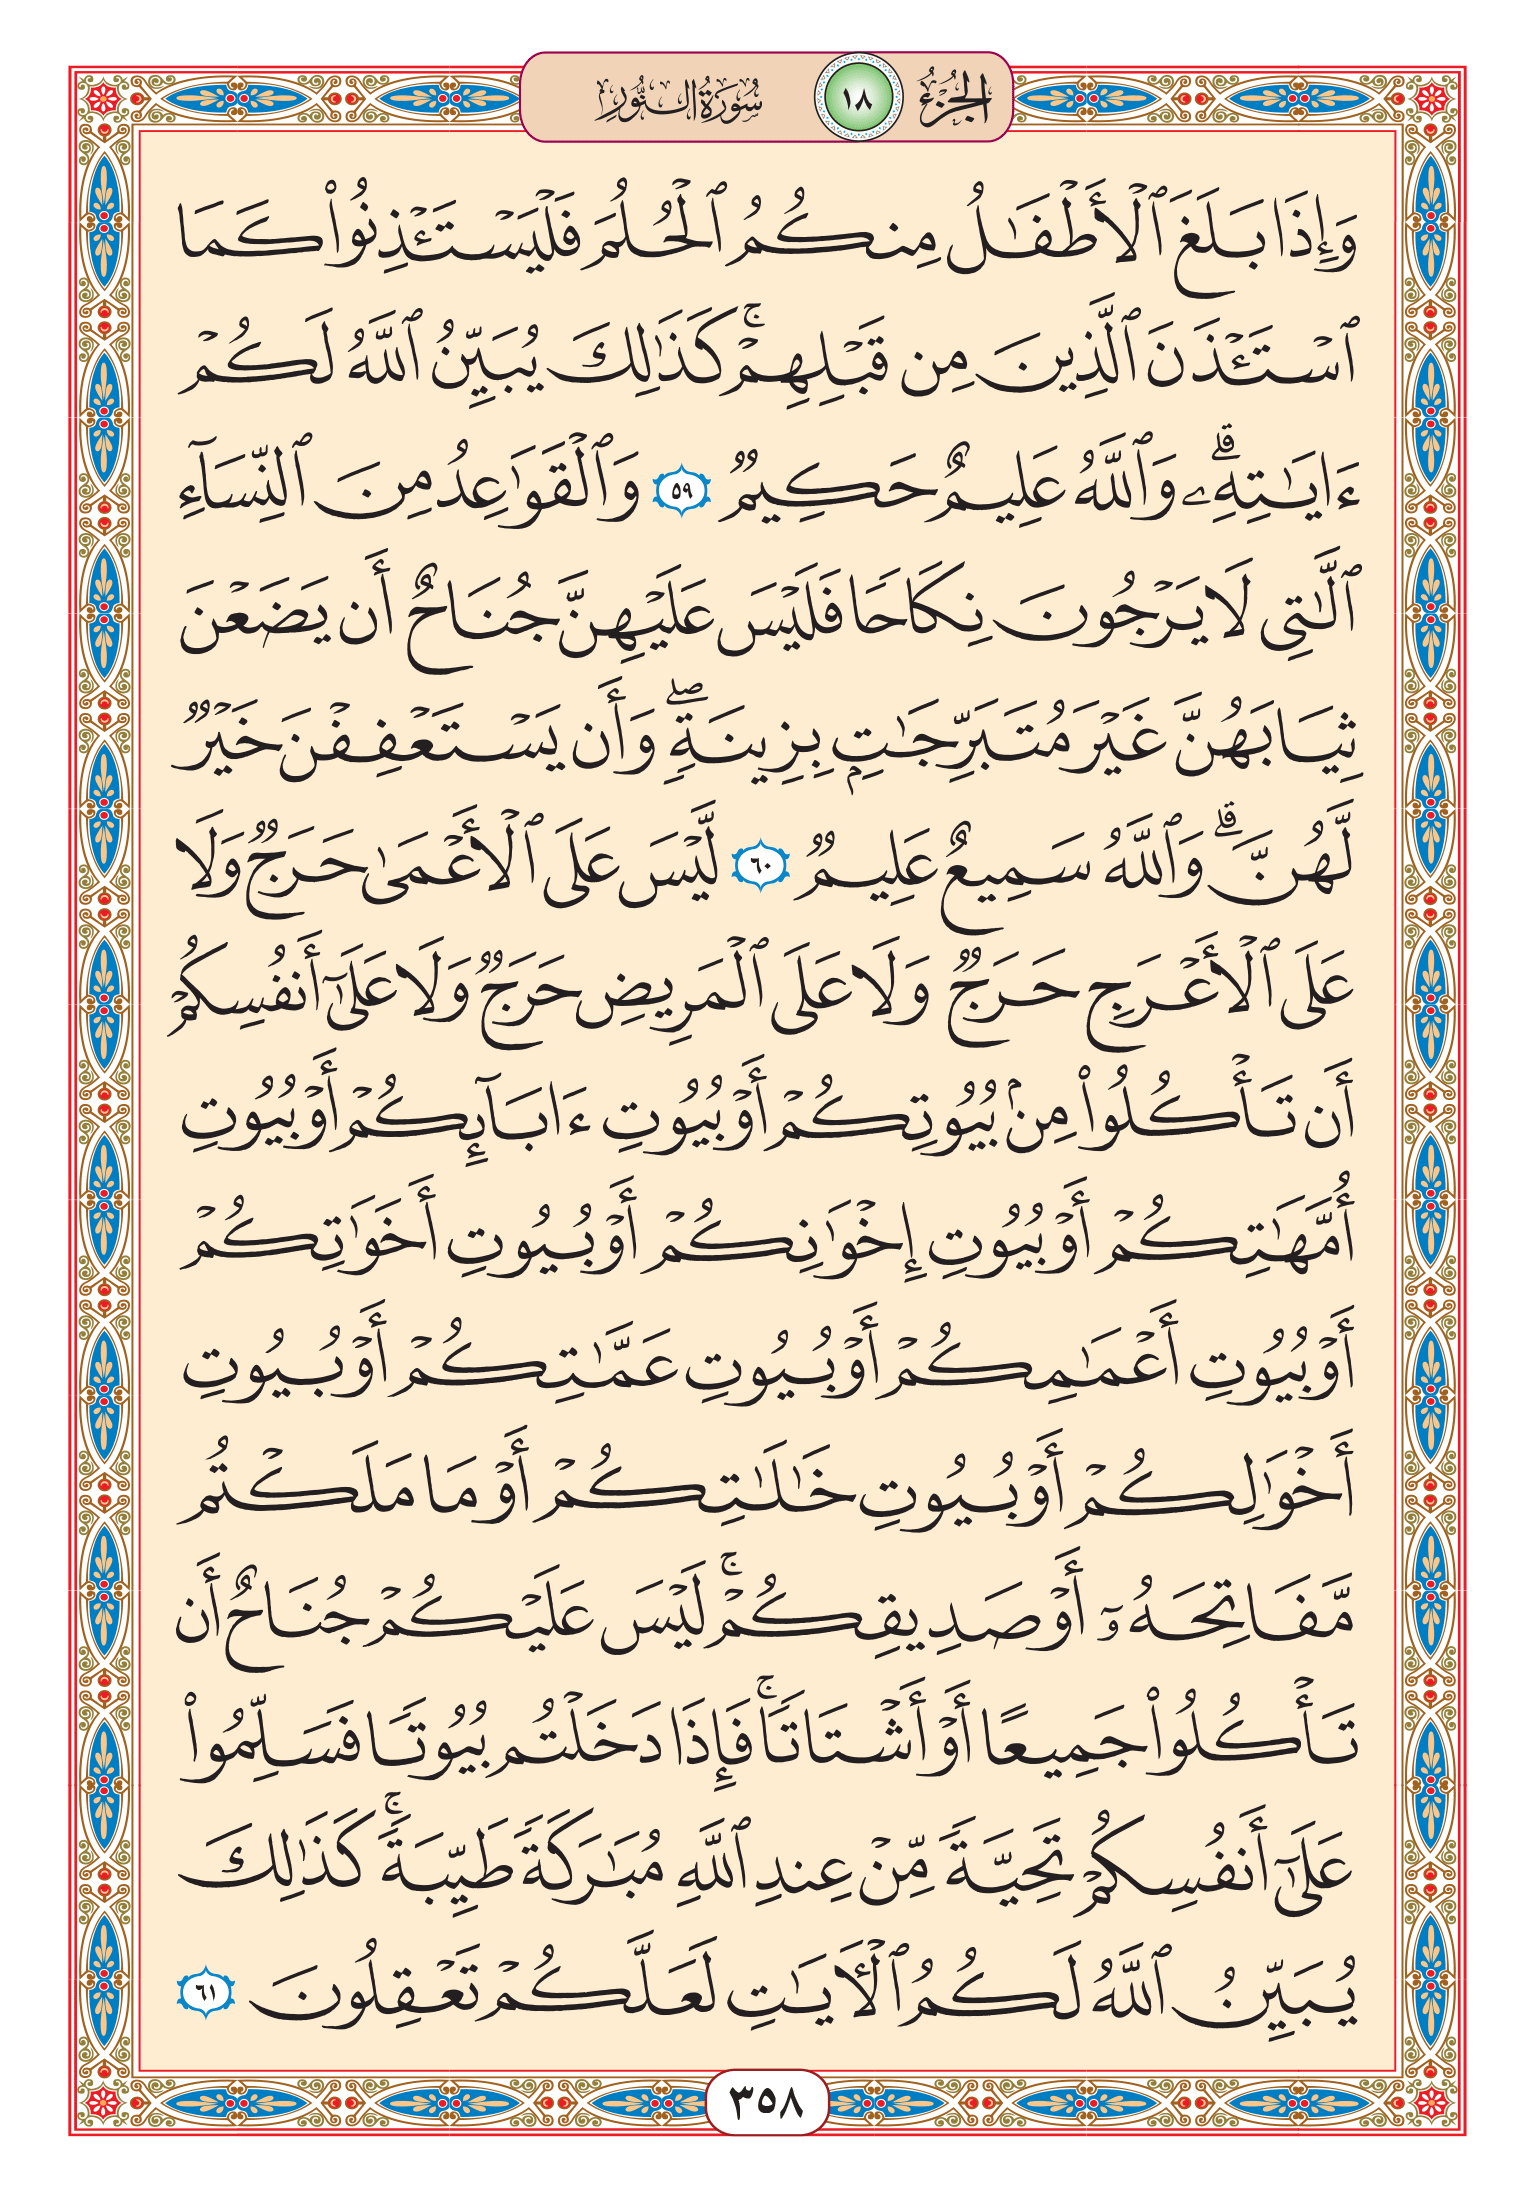 الجزء ١٨ سورة النور
وَإِذَا بَلَغَ ٱلْأَطْفَٰلُ مِنكُمُ ٱلْحُلُمَ فَلْيَسْتَـْٔذِنُوا۟ كَمَا
ٱسْتَـْٔذَنَ ٱلَّذِينَ مِن قَبْلِهِمْ ۚ كَذَٰلِكَ يُبَيِّنُ ٱللَّهُ لَكُمْ
ءَايَٰتِهِۦ ۗ وَٱللَّهُ عَلِيمٌ حَكِيمٌ ٥٩ وَٱلْقَوَٰعِدُ مِنَ ٱلنِّسَآءِ
ٱلَّٰتِى لَا يَرْجُونَ نِكَاحًا فَلَيْسَ عَلَيْهِنَّ جُنَاحٌ أَن يَضَعْنَ
ثِيَابَهُنَّ غَيْرَ مُتَبَرِّجَٰتٍۭ بِزِينَةٍ ۖ وَأَن يَسْتَعْفِفْنَ خَيْرٌ
لَّهُنَّ ۗ وَٱللَّهُ سَمِيعٌ عَلِيمٌ ٦٠ لَّيْسَ عَلَى ٱلْأَعْمَىٰ حَرَجٌ وَلَا
عَلَى ٱلْأَعْرَجِ حَرَجٌ وَلَا عَلَى ٱلْمَرِيضِ حَرَجٌ وَلَا عَلَىٰٓ أَنفُسِكُمْ
أَن تَأْكُلُوا۟ مِنۢ بُيُوتِكُمْ أَوْ بُيُوتِ ءَابَآئِكُمْ أَوْ بُيُوتِ
أُمَّهَٰتِكُمْ أَوْ بُيُوتِ إِخْوَٰنِكُمْ أَوْ بُيُوتِ أَخَوَٰتِكُمْ
أَوْ بُيُوتِ أَعْمَٰمِكُمْ أَوْ بُيُوتِ عَمَّٰتِكُمْ أَوْ بُيُوتِ
أَخْوَٰلِكُمْ أَوْ بُيُوتِ خَٰلَٰتِكُمْ أَوْ مَا مَلَكْتُم
مَّفَاتِحَهُۥٓ أَوْ صَدِيقِكُمْ ۚ لَيْسَ عَلَيْكُمْ جُنَاحٌ أَن
تَأْكُلُوا۟ جَمِيعًا أَوْ أَشْتَاتًا ۚ فَإِذَا دَخَلْتُم بُيُوتًا فَسَلِّمُوا۟
عَلَىٰٓ أَنفُسِكُمْ تَحِيَّةً مِّنْ عِندِ ٱللَّهِ مُبَٰرَكَةً طَيِّبَةً ۚ كَذَٰلِكَ
يُبَيِّنُ ٱللَّهُ لَكُمُ ٱلْـَٔايَٰتِ لَعَلَّكُمْ تَعْقِلُونَ ٦١
٣٥٨